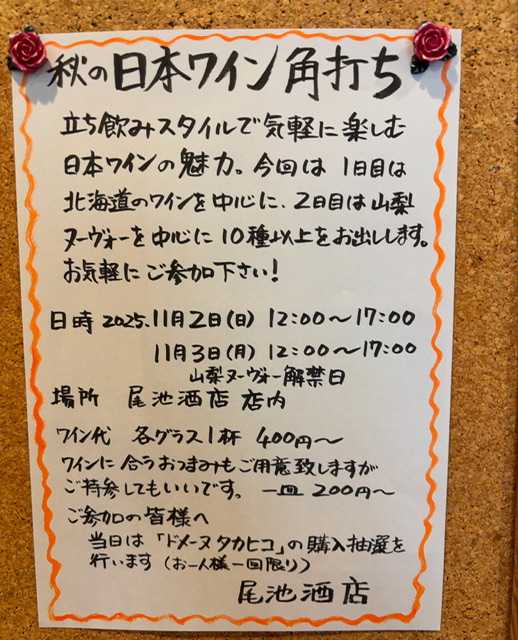 秋の日本ワイン角打ち
立ち飲みスタイルで気軽に楽しむ
日本ワインの魅力。今回は1日目は
北海道のワインを中心に、2日目は山梨
ヌーヴォーを中心に10種以上をお出しします。
お気軽にご参加下さい!
日時 2025.11月2日(日) 12:00〜17:00
11月3日(月) 12:00〜17:00
山梨ヌーヴォー解禁日
場所 尾池酒店 店内
ワイン代 各グラス1杯 400円〜
ワインに合うおつまみもご用意致しますが
ご持参してもいいです。 一皿 200円〜
ご参加の皆様へ
当日は「ドメーヌタカヒコ」の購入抽選を
行います(お一人様一回限り)
尾池酒店